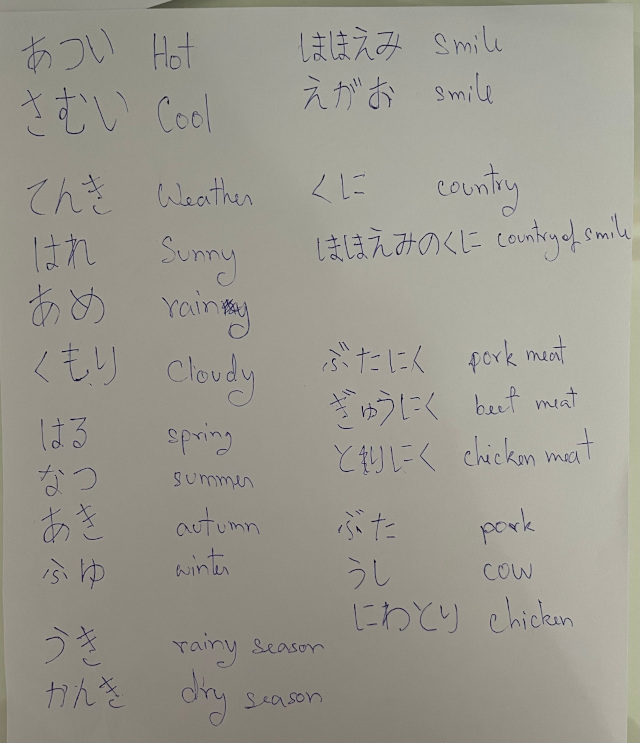 あつい Hot
さむい Cool
てんき Weather
はれ Sunny
あめ rainy
くもり Cloudy
はる spring
なつ summer
あき autumn
ふゆ winter
うき rainy season
かんき dry season
ほほえみ smile
えがお smile
くに country
ほほえみのくに country of smile
ぶたにく pork meat
ぎゅうにく beef meat
とりにく chicken meat
ぶた pork
うし cow
にわとり chicken